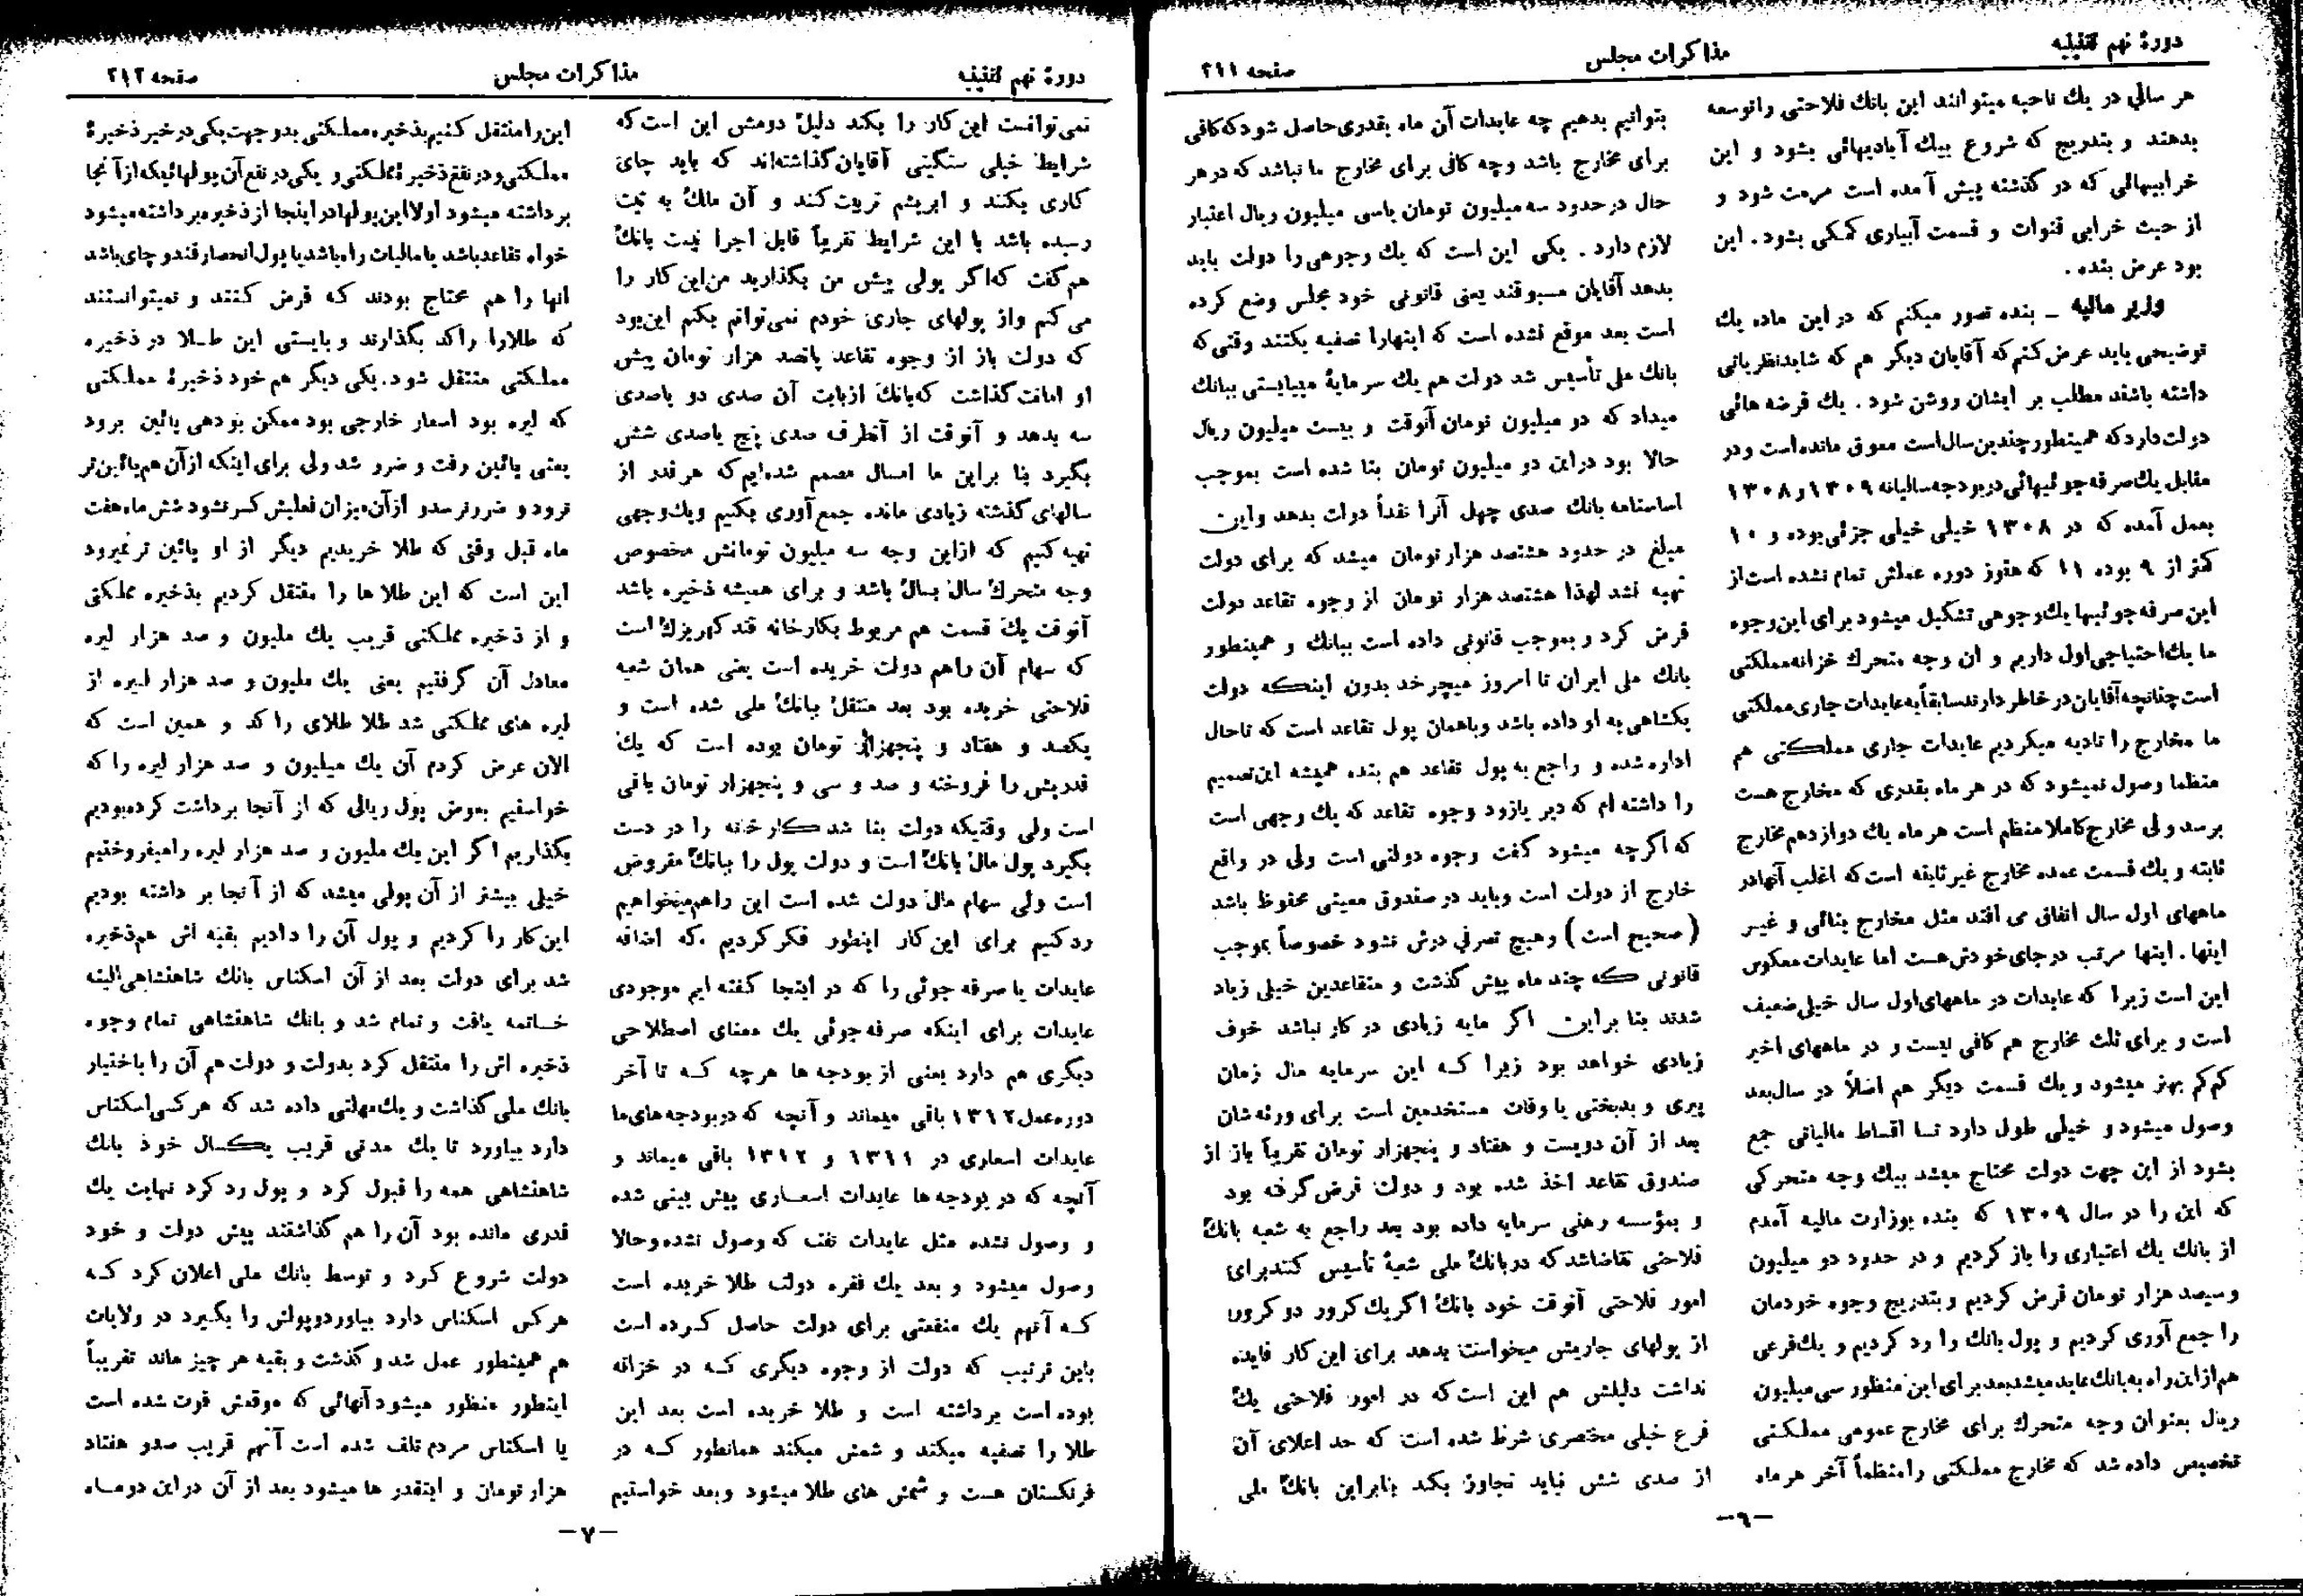 دورهٔ نهم تقنینیه
مذاکرات مجلس
صفحه ۲۱۱
هر سالی در یك ناحیه میتوانند این بانك فلاحتی را توسعه
بدهند و بتدریج که شروع بیك آبادیهائی بشود و این
خرابیهائی که در گذشته پیش آمده است مرمت شود و
از حیث خرابی قنوات و قسمت آبیاری کمکی بشود. این
بود عرض بنده.
وزیر مالیه ـ بنده تصور میکنم که در این ماده یك
توضیحی باید عرض کنم که آقایان دیگر هم که شاید نظریاتی
داشته باشند مطلب بر ایشان روشن شود. یك قرضه هائی
دولت دارد که همینطور چندین سال است معوق مانده است و در
مقابل یك صرفه جوئیهائی در بودجه سالیانه ۱۳۰۹ و ۱۳۰۸
بعمل آمده که در ۱۳۰۸ خیلی خیلی جزئی بوده و ۱۰
کمتر از ۹ بوده ۱۱ که هنوز دوره عملش تمام نشده است از
این صرفه جوئیها یك وجوهی تشکیل میشود برای این وجوه
ما یك احتیاجی اول داریم و آن وجه متحرك خزانه مملکتی
است چنانچه آقایان در خاطر دارند سابقاً به عایدات جاری مملکتی
ما مخارج را تادیه میکردیم عایدات جاری مملکتی هم
منظما وصول نمیشود که در هر ماه بقدری که مخارج هست
برسد ولی مخارج کاملا منظم است هر ماه یك دوازدهم مخارج
ثابته و یك قسمت عمده مخارج غیر ثابته است که اغلب آنها در
ماههای اول سال اتفاق می افتد مثل مخارج بنائی و غیر
اینها. اینها مرتب در جای خودش هست اما عایدات معکوس
این است زیرا که عایدات در ماههای اول سال خیلی ضعیف
است و برای ثلث مخارج هم کافی نیست و در ماههای اخیر
کم کم بهتر میشود و یك قسمت دیگر هم اصلاً در سال بعد
وصول میشود و خیلی طول دارد تا اقساط مالیاتی جمع
بشود از این جهت دولت محتاج میشد بیك وجه متحرکی
که این را در سال ۱۳۰۹ که بنده بوزارت مالیه آمدم
از بانك یك اعتباری را باز کردیم و در حدود دو میلیون
و سیصد هزار تومان قرض کردیم و بتدریج وجوه خودمان
را جمع آوری کردیم و پول بانك را رد کردیم و یك فرعی
هم از این راه به بانك عاید میشد بعد برای این منظور سی میلیون
ریال بعنوان وجه متحرك برای مخارج عمومی مملکتی
تخصیص داده شد که مخارج مملکتی را منظماً آخر هر ماه
بتوانیم بدهیم چه عایدات آن ماه بقدری حاصل شود که کافی
برای مخارج باشد و چه کافی برای مخارج ما نباشد که در هر
حال در حدود سه میلیون تومان یا سی میلیون ریال اعتبار
لازم دارد. یکی این است که یك وجوهی را دولت باید
بدهد آقایان مسبوقند یعنی قانونی خود مجلس وضع کرده
است بعد موقع نشده است که اینها را تصفیه بکنند وقتی که
بانك ملی تأسیس شد دولت هم یك سرمایهٔ میبایستی ببانك
میداد که دو میلیون تومان آنوقت و بیست میلیون ریال
حالا بود در این دو میلیون تومان بنا شده است بموجب
اساسنامه بانك صدی چهل آنرا نقداً دولت بدهد و این
مبلغ در حدود هشتصد هزار تومان میشد که برای دولت
تهیه نشد لهذا هشتصد هزار تومان از وجوه تقاعد دولت
قرض کرد و بموجب قانونی داده است ببانك و همینطور
بانك ملی ایران تا امروز میچرخد بدون اینکه دولت
یکشاهی به او داده باشد و باهمان پول تقاعد است که تا حال
اداره شده و راجع به پول تقاعد هم بنده همیشه این تصمیم
را داشته ام که دیر یا زود وجوه تقاعد که یك وجهی است
که اگر چه میشود گفت وجوه دولتی است ولی در واقع
خارج از دولت است و باید در صندوق معینی محفوظ باشد
(صحیح است) و هیچ تصرفی درش نشود خصوصاً بموجب
قانونی که چند ماه پیش گذشت و متقاعدین خیلی زیاد
شدند بنا براین اگر مایه زیادی در کار نباشد خوف
زیادی خواهد بود زیرا که این سرمایه مال زمان
پیری و بدبختی یا وفات مستخدمین است برای ورثه شان
بعد از آن دویست و هفتاد و پنجهزار تومان تقریباً باز از
صندوق تقاعد اخذ شده بود و دولت قرض گرفته بود
و بمؤسسه رهنی سرمایه داده بود بعد راجع به شعبه بانك
فلاحتی تقاضا شد که در بانك ملی شعبهٔ تأسیس کنند برای
امور فلاحتی آنوقت خود بانك اگر یك کرور دو کرور
از پولهای جاریش میخواست بدهد برای این کار فایده
نداشت دلیلش هم این است که در امور فلاحتی یك
فرع خیلی مختصری شرط شده است که حد اعلای آن
از صدی شش نباید تجاوز بکند بنابراین بانك ملی
ـ۶ـ
دورهٔ نهم تقنینیه
مذاکرات مجلس
صفحه ۲۱۲
نمی توانست این کار را بکند دلیل دومش این است که
شرایط خیلی سنگینی آقایان گذاشته‌اند که باید چای
کاری بکند و ابریشم تربیت کند و آن ملك به ثبت
رسیده باشد با این شرایط تقریباً قابل اجرا نیست بانك
هم گفت که اگر پولی پیش من بگذارید من این کار را
می کنم و از پولهای جاری خودم نمی توانم بکنم این بود
که دولت باز از وجوه تقاعد پانصد هزار تومان پیش
او امانت گذاشت که بانك از بابت آن صدی دو یا صدی
سه بدهد و آنوقت از آنطرف صدی پنج یا صدی شش
بگیرد بنا براین ما امسال مصمم شده‌ایم که هر قدر از
سالهای گذشته زیادی مانده جمع آوری بکنیم و یك وجهی
تهیه کنیم که از این وجه سه میلیون تومانش مخصوص
وجه متحرك سال بسال باشد و برای همیشه ذخیره باشد
آنوقت یك قسمت هم مربوط بکارخانه قند کهریزك است
که سهام آن را هم دولت خریده است یعنی همان شعبه
فلاحتی خریده بود بعد منتقل ببانك ملی شده است و
یکصد و هفتاد و پنجهزار تومان بوده است که یك
قدریش را فروخته و صد و سی و پنجهزار تومان باقی
است ولی وقتیکه دولت بنا شد کارخانه را در دست
بگیرد پول مال بانك است و دولت پول را ببانك مقروض
است ولی سهام مال دولت شده است این را هم میخواهیم
رد کنیم برای این کار اینطور فکر کردیم که اضافه
عایدات یا صرفه جوئی را که در اینجا گفته ایم موجودی
عایدات برای اینکه صرفه جوئی یك معنای اصطلاحی
دیگری هم دارد یعنی از بودجه ها هرچه که تا آخر
دوره عمل ۱۳۱۲ باقی میماند و آنچه که در بودجه های ما
عایدات اسعاری در ۱۳۱۱ و ۱۳۱۲ باقی میماند و
آنچه که در بودجه ها عایدات اسعاری پیش بینی شده
و وصول نشده مثل عایدات نفت که وصول نشده و حالا
وصول میشود و بعد یك فقره دولت طلا خریده است
که آنهم یك منفعتی برای دولت حاصل کرده است
باین ترتیب که دولت از وجوه دیگری که در خزانه
بوده است برداشته است و طلا خریده است بعد این
طلا را تصفیه میکند و شمش میکند همانطور که در
فرنگستان هست و شمش های طلا میشود و بعد خواستیم
این را منتقل کنیم بذخیره مملکتی بدو جهت یکی در خیر ذخیرهٔ
مملکتی و در نفع ذخیرهٔ مملکتی و یکی در نفع آن پولهائیکه از آنجا
برداشته میشود اولا این پولها در اینجا از ذخیره برداشته میشود
خواه تقاعد باشد یا مالیات راه باشد یا پول انحصار قند و چای باشد
آنها را هم محتاج بودند که قرض کنند و نمیتوانستند
که طلا را راکد بگذارند و بایستی این طلا در ذخیره
مملکتی منتقل شود. یکی دیگر هم خود ذخیرهٔ مملکتی
که لیره بود اسعار خارجی بود ممکن بود هی پائین برود
یعنی پائین رفت و ضرر شد ولی برای اینکه از آن هم پائین تر
نرود و ضررتر نشود از آن میزان فعلیش کسر نشود شش ماه هفت
ماه قبل وقتی که طلا خریدیم دیگر از او پائین تر نمیرود
این است که این طلا ها را منتقل کردیم بذخیره مملکتی
و از ذخیره مملکتی قریب یك ملیون و صد هزار لیره
معادل آن گرفتیم یعنی یك ملیون و صد هزار لیره از
لیره های مملکتی شد طلا طلای راکد و همین است که
الان عرض کردم آن یك میلیون و صد هزار لیره را که
خواستیم بعوض پول ریالی که از آنجا برداشت کرده بودیم
بگذاریم اگر این یك ملیون و صد هزار لیره را میفروختیم
خیلی بیشتر از آن پولی میشد که از آنجا بر داشته بودیم
این کار را کردیم و پول آن را دادیم بقیه اش هم ذخیره
شد برای دولت بعد از آن اسکناس بانك شاهنشاهی البته
خاتمه یافت و تمام شد و بانك شاهنشاهی تمام وجوه
ذخیره اش را منتقل کرد بدولت و دولت هم آن را باختیار
بانك ملی گذاشت و یك مهلتی داده شد که هر کسی اسکناس
دارد بیاورد تا یك مدتی قریب یکسال خود بانك
شاهنشاهی همه را قبول کرد و پول رد کرد نهایت یك
قدری مانده بود آن را هم گذاشتند پیش دولت و خود
دولت شروع کرد و توسط بانك ملی اعلان کرد که
هر کس اسکناس دارد بیاورد و پولش را بگیرد در ولایات
هم همینطور عمل شد و گذشت و بقیه هر چیز ماند تقریباً
اینطور منظور میشود آنهائی که موقعش فوت شده است
یا اسکناس مردم تلف شده است آنهم قریب صد و هفتاد
هزار تومان و اینقدر ها میشود بعد از آن در این دو ماه
ـ۷ـ